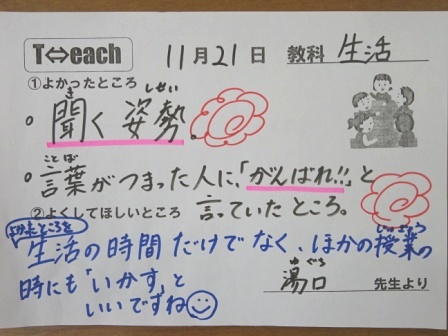 T⇔each
11月21日 教科 生活
①よかったところ
き しせい
。聞く姿勢。
ことば
。言葉がつまった人に、「がんばれ!!」と
言っていたところ。
②よくしてほしいところ
よかったところを
じゅぎょう
生活の時間だけでなく、ほかの授業の
時にも「いかす」と
いいですね
ゆぐち
湯口 先生より